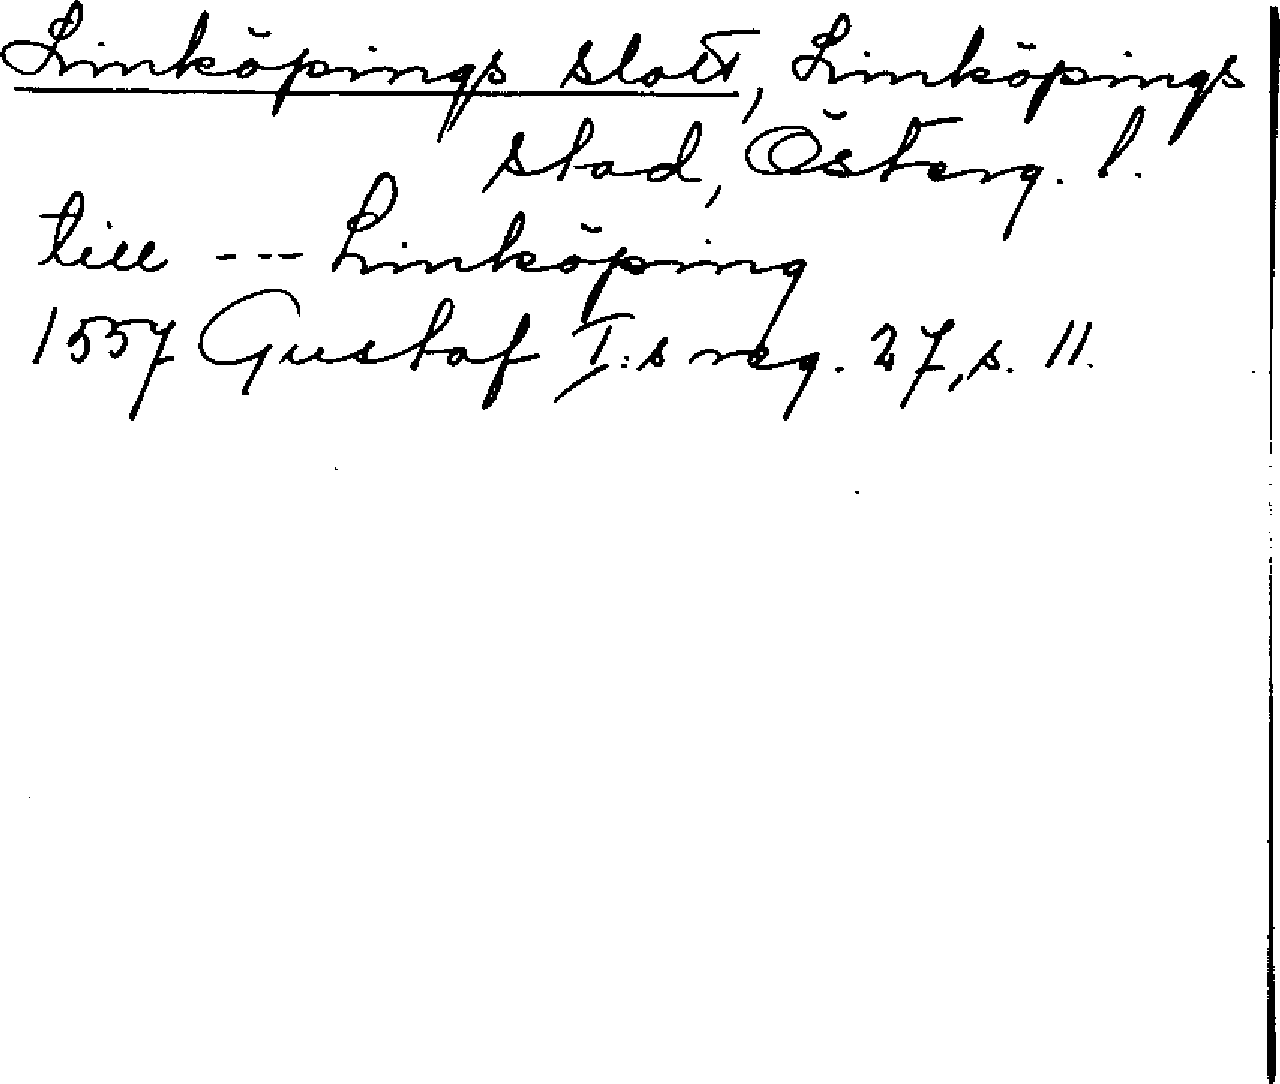 Linköpings slott, Linköpings
stad, Österg. l.
till --- Linköping
1557 Gustaf I:s reg. 27, s. 11.